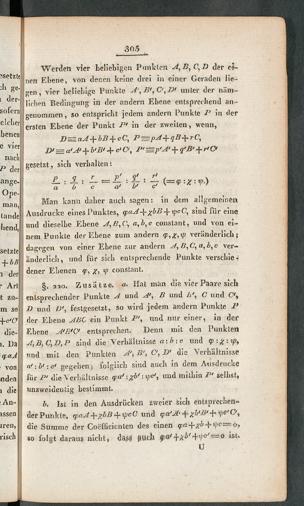 305
Werden vier beliebigen Punkten A, B, C, D der ei-
nen Ebene, von denen keine drei in einer Geraden lie-
gen, vier beliebige Punkte A', B', C', D' unter der näm-
lichen Bedingung in der andern Ebene entsprechend an-
genommen, so entspricht jedem andern Punkte P in der
ersten Ebene der Punkt P' in der zweiten, wenn,
D≡aA+bB+cC, P≡pA+qB+rC,
D'≡a'A'+b'B'+c'C', P'≡p'A'+q'B'+r'C'
gesetzt, sich verhalten:
p/a : q/b : r/c = p'/a' : q'/b' : r'/c' (=φ:χ:ψ.)
Man kann daher auch sagen: in dem allgemeinen
Ausdrucke eines Punktes, φaA+χbB+ψcC, sind für eine
und dieselbe Ebene A, B, C, a, b, c constant, und von ei-
nem Punkte der Ebene zum andern φ, χ, ψ veränderlich;
dagegen von einer Ebene zur andern A, B, C, a, b, c ver-
änderlich, und für sich entsprechende Punkte verschie-
dener Ebenen φ, χ, ψ constant.
§. 220. Zusätze. a. Hat man die vier Paare sich
entsprechender Punkte A und A', B und B', C und C',
D und D', festgesetzt, so wird jedem andern Punkte P
der Ebene ABC ein Punkt P', und nur einer, in der
Ebene A'B'C' entsprechen. Denn mit den Punkten
A, B, C, D, P sind die Verhältnisse a:b:c und φ:χ:ψ,
und mit den Punkten A', B', C', D' die Verhältnisse
a':b':c' gegeben; folglich sind auch in dem Ausdrucke
für P' die Verhältnisse φa':χb':ψc', und mithin P' selbst,
unzweideutig bestimmt.
b. Ist in den Ausdrücken zweier sich entsprechen-
der Punkte, φaA+χbB+ψcC und φa'A'+χb'B'+ψc'C',
die Summe der Coëfficienten des einen φa+χb+ψc=0,
so folgt daraus nicht, dass auch φa'+χb'+ψc'=0 ist.
U